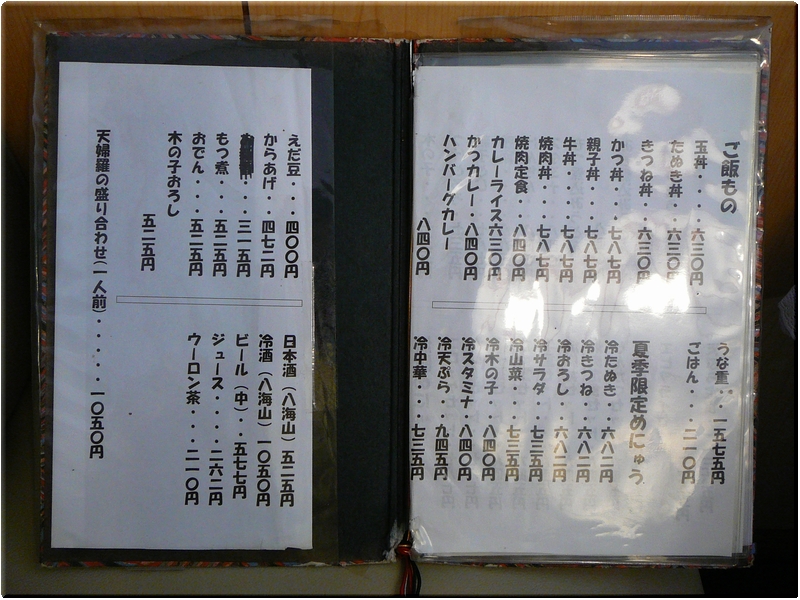 ご飯もの
玉丼・・・六三〇円
たぬき丼・・六三〇円
きつね丼・・六三〇円
かつ丼・・・七八七円
親子丼・・・七八七円
牛丼・・・・七八七円
焼肉丼・・・七八七円
焼肉定食・・・八四〇円
カレーライス六三〇円
かつカレー・八四〇円
ハンバーグカレー
八四〇円
うな重・・一五七五円
ごはん・・・二一〇円
夏季限定めにゅう
冷たぬき・・六八二円
冷きつね・・六八二円
冷おろし・・六八二円
冷サラダ・・七三五円
冷山菜・・・七三五円
冷木の子・・八四〇円
冷スタミナ・八四〇円
冷天ぷら・・九四五円
冷中華・・・七三五円
えだ豆・・・四〇〇円
からあげ・・四七二円
・・・三一五円
もつ煮・・・五二五円
おでん・・・五二五円
木の子おろし
五二五円
日本酒（八海山）五二五円
冷酒（八海山）一〇五〇円
ビール（中）・・五七七円
ジュース・・・・二六二円
ウーロン茶・・・二一〇円
天婦羅の盛り合わせ（一人前）・・・・・一〇五〇円